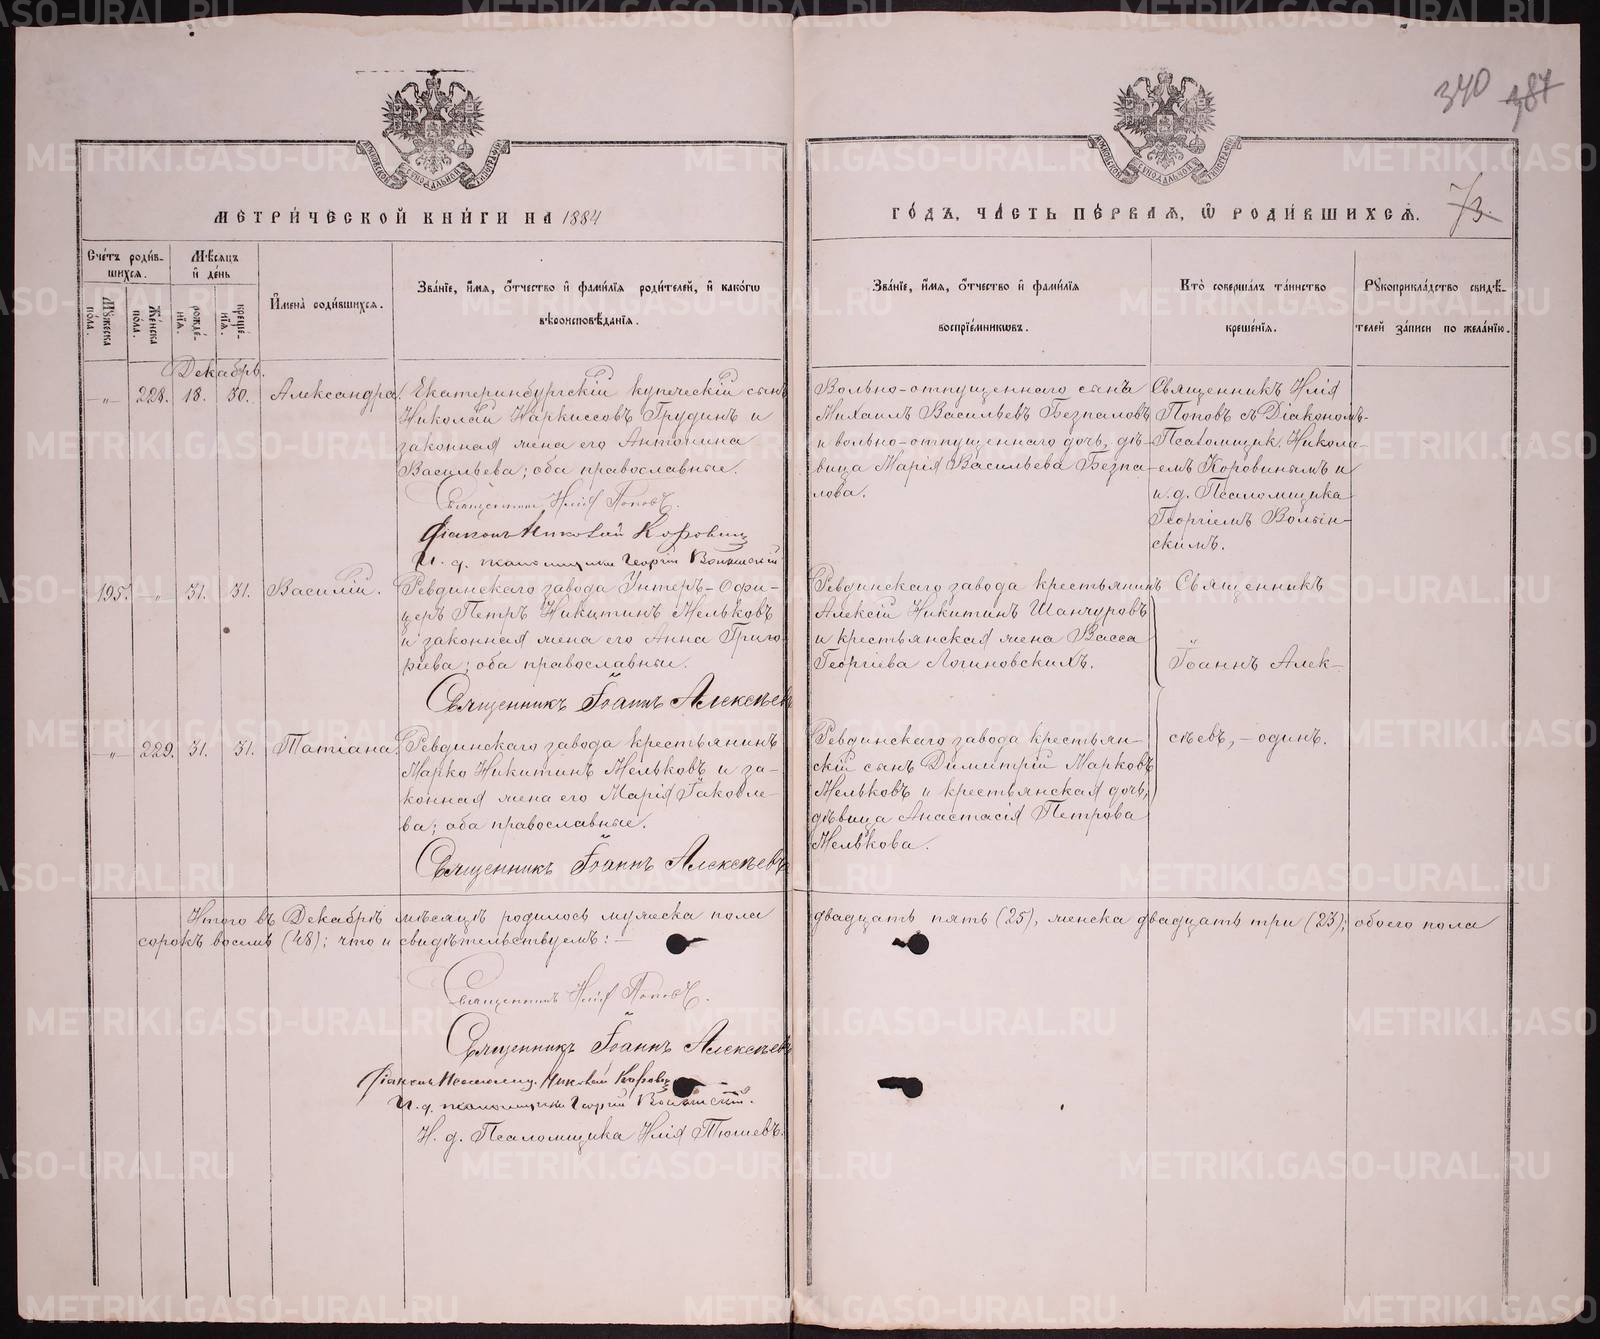 340 387
МЕТРИЧЕСКОЙ КНИГИ НА 1884
ГОДЪ, ЧАСТЬ ПЕРВАЯ, Ѿ РОДИВШИХСЯ. 73.
Счетъ родив-
шихся.
Мужеска пола.
Женска пола.
Мѣсяцъ
и день
рожде-
нія.
креще-
нія.
Имена родившихся.
Званіе, имя, отчество и фамилія родителей, и какогѡ
вѣроисповѣданія.
Званіе, имя, отчество и фамилія
воспріемникѡвъ.
Кто совершалъ таинство
крещенія.
Рукоприкладство свидѣ-
телей записи по желанію.
Декабрь.
-„- 228. 18. 30. Александра.
Екатеринбургскій купеческій сынъ
Николай Наркиссовъ Грудинъ и
законная жена его Антонина
Васильева; оба православные.
Священникъ Илія Поповъ.
Діаконъ Николай Коровинъ
И. д. псаломщика Георгій Волынскій
Вольно-отпущеннаго сынъ
Михаилъ Васильевъ Безпаловъ
и вольно-отпущеннаго дочь, дѣ-
вица Марія Васильева Безпа-
лова.
Священникъ Илія
Поповъ съ Діакономъ-
Псаломщик. Никола-
емъ Коровинымъ и
и. д. Псаломщика
Георгіемъ Волын-
скимъ.
195. -„- 31. 31. Василій.
Ревдинскаго завода Унтеръ-Офи-
церъ Петръ Никитинъ Мельковъ
и законная жена его Анна Григо-
рьева; оба православные.
Священникъ Іоаннъ Алексѣевъ
Ревдинскаго завода крестьянинъ
Алексій Никитинъ Шанчуровъ
и крестьянская жена Васса
Георгіева Логиновскихъ.
Священникъ
Іоаннъ Алек-
сѣевъ, - одинъ.
-„- 229. 31. 31. Татіана.
Ревдинскаго завода крестьянинъ
Марко Никитинъ Мельковъ и за-
конная жена его Марія Іаковле-
ва; оба православные.
Священникъ Іоаннъ Алексѣевъ
Ревдинскаго завода крестьян-
скій сынъ Димитрій Марковъ
Мельковъ и крестьянская дочь,
дѣвица Анастасія Петрова
Мелькова.
Итого въ Декабрѣ мѣсяцѣ родилось мужеска пола двадцать пять (25), женска двадцать три (23); обоего пола
сорокъ восемь (48); что и свидѣтельствуемъ: -
Священникъ Илія Поповъ.
Священникъ Іоаннъ Алексѣевъ
Діаконъ Псаломщ. Николай Коровинъ
И. д. псаломщика Георгій Волынскій.
И. д. Псаломщика Илія Тюшевъ.
METRIKI.GASO-URAL.RU